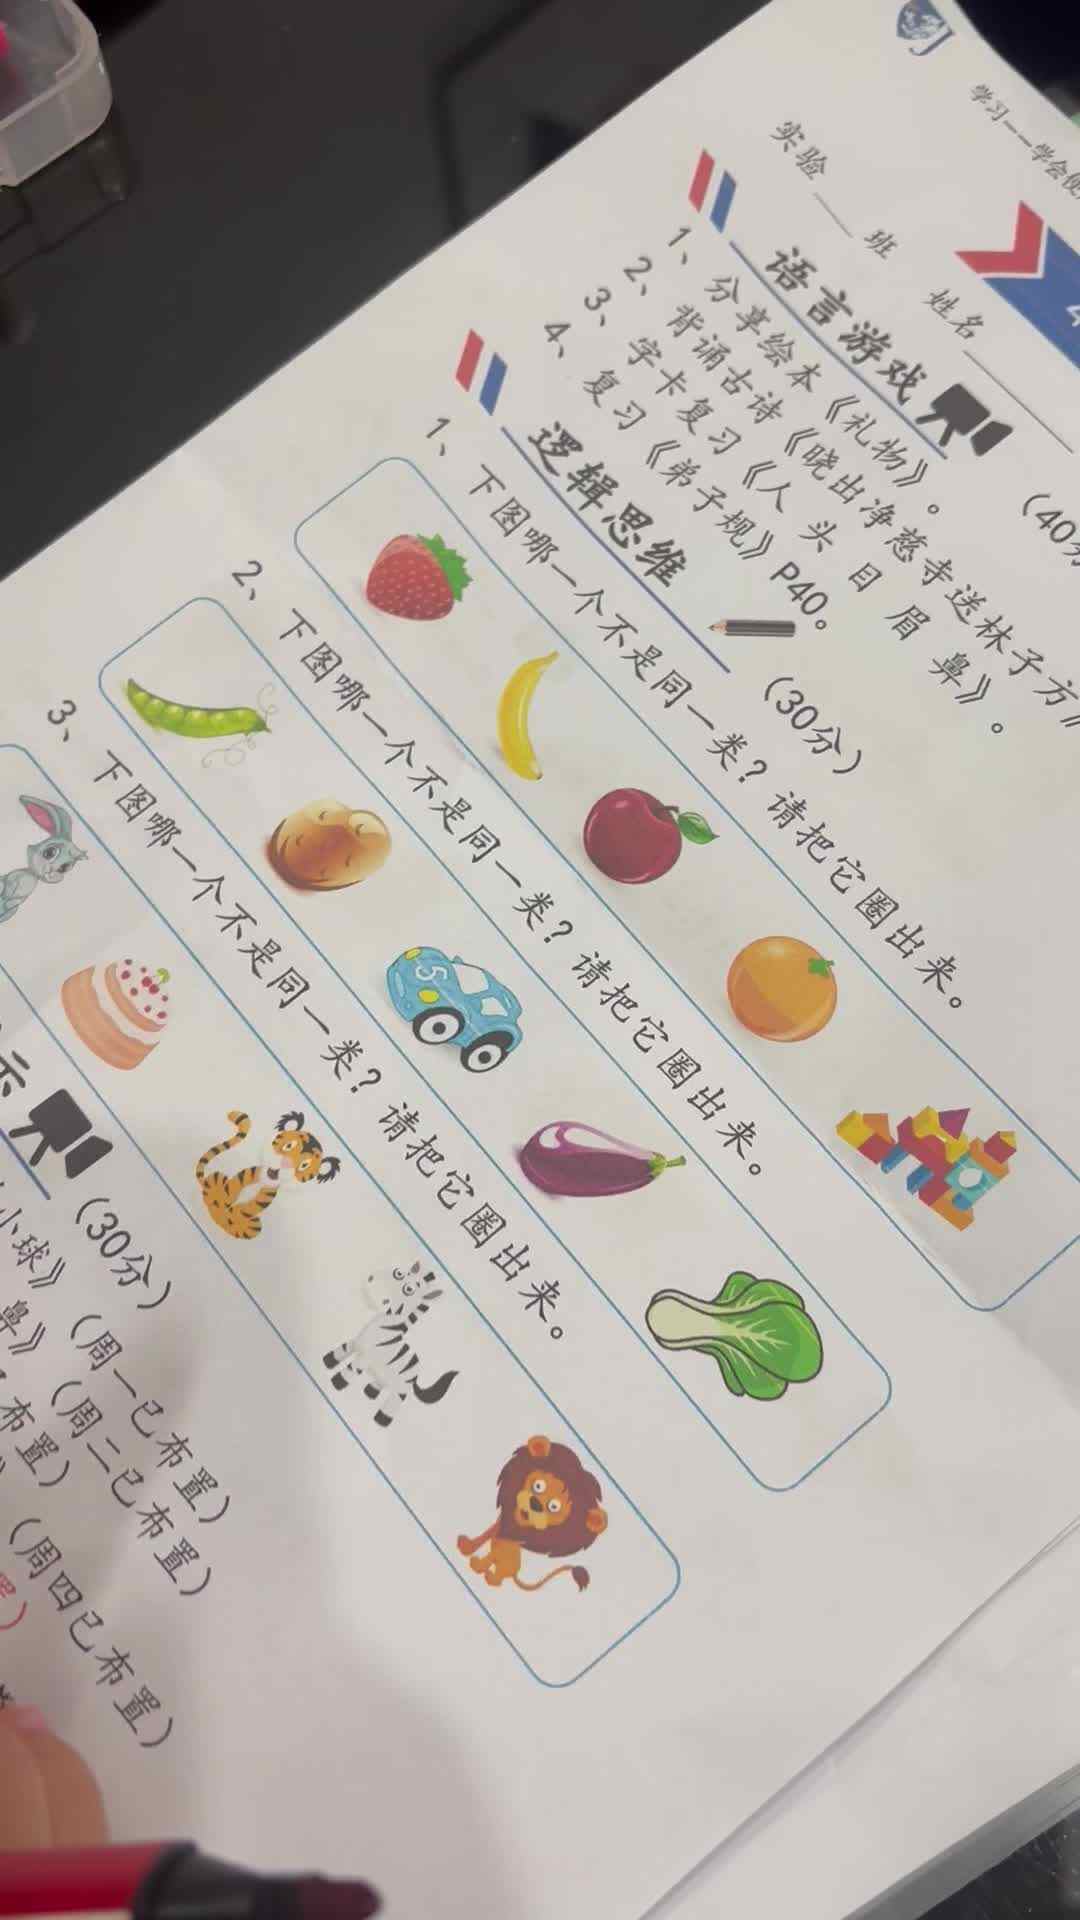 学习——学会使
实验 班 姓名
语言游戏 (40分
1、分享绘本《礼物》。
2、背诵古诗《晓出净慈寺送林子方》
3、字卡复习《人 头 目 眉 鼻》。
4、复习《弟子规》P40。
逻辑思维 (30分)
1、下图哪一个不是同一类？请把它圈出来。
2、下图哪一个不是同一类？请把它圈出来。
5
3、下图哪一个不是同一类？请把它圈出来。
示 (30分)
小球》 (周一已布置)
鼻》 (周二已布置)
布置)
(周四已布置)